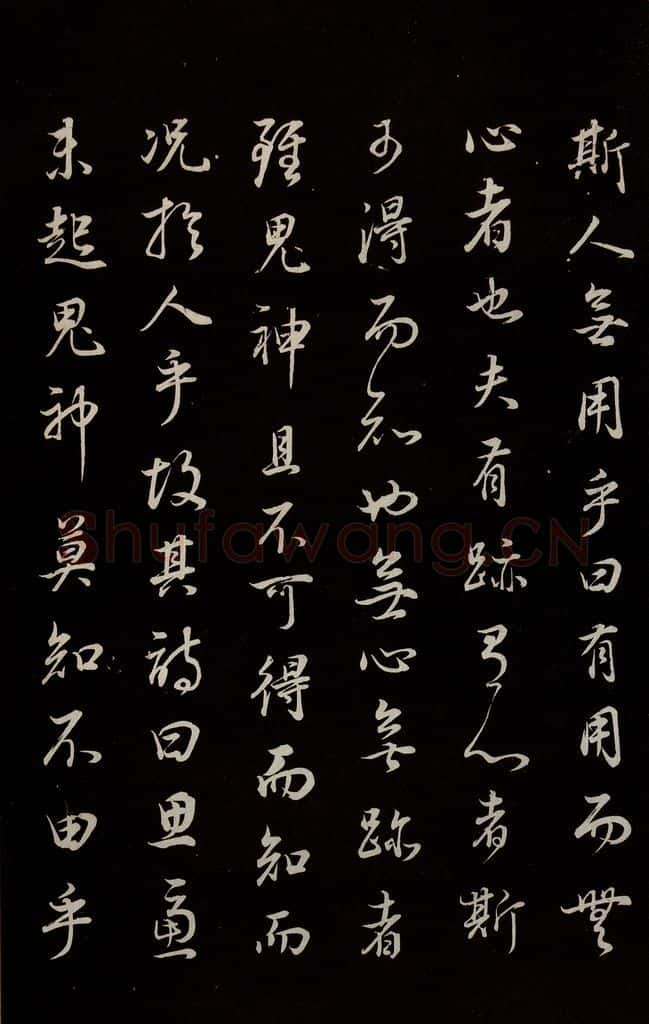 斯人無用乎曰有用而無
心者也夫有跡有心者斯
可得而知也無心無跡者
雖鬼神且不可得而知而
况於人乎故其詩曰思慮
未起鬼神莫知不由乎
Shufawang.CN